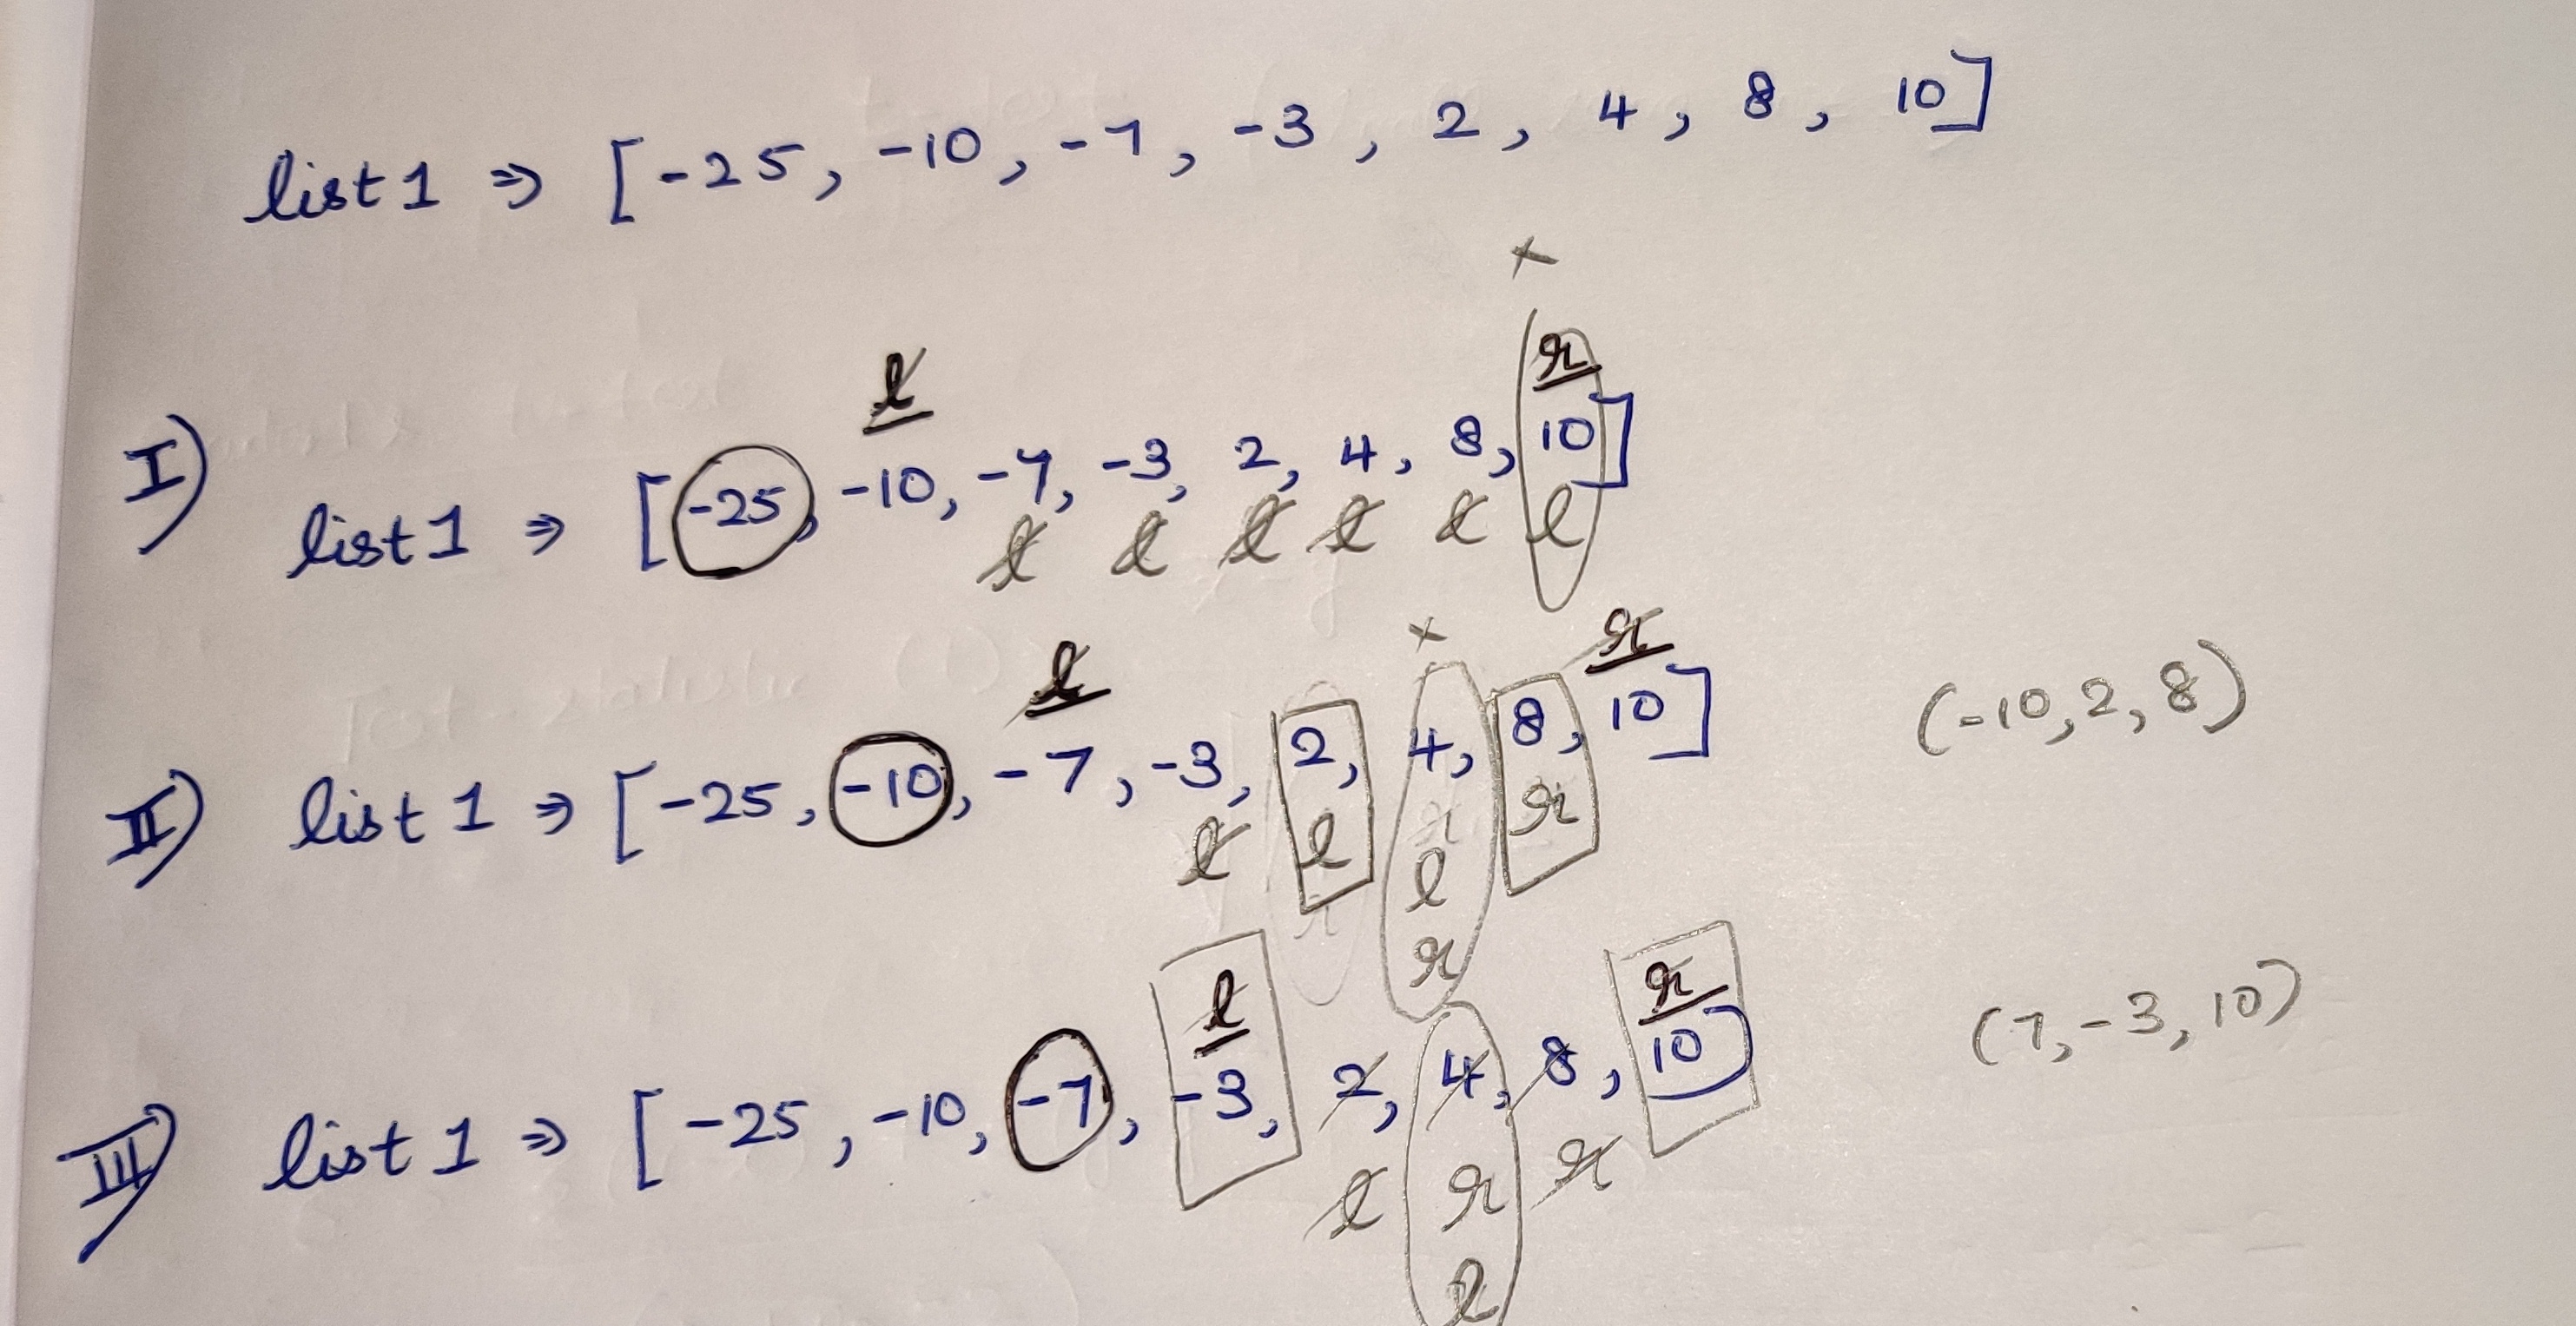 list 1 ⇒ [-25, -10, -7, -3, 2, 4, 8, 10]
×
l r
I) list 1 ⇒ [-25, -10, -7, -3, 2, 4, 8, 10]
l l l l l l
l × r
II) list 1 ⇒ [-25, -10, -7, -3, 2, 4, 8, 10] (-10, 2, 8)
l l r
l
r
l r
III) list 1 ⇒ [-25, -10, -7, -3, 2, 4, 8, 10] (7, -3, 10)
l r r
l